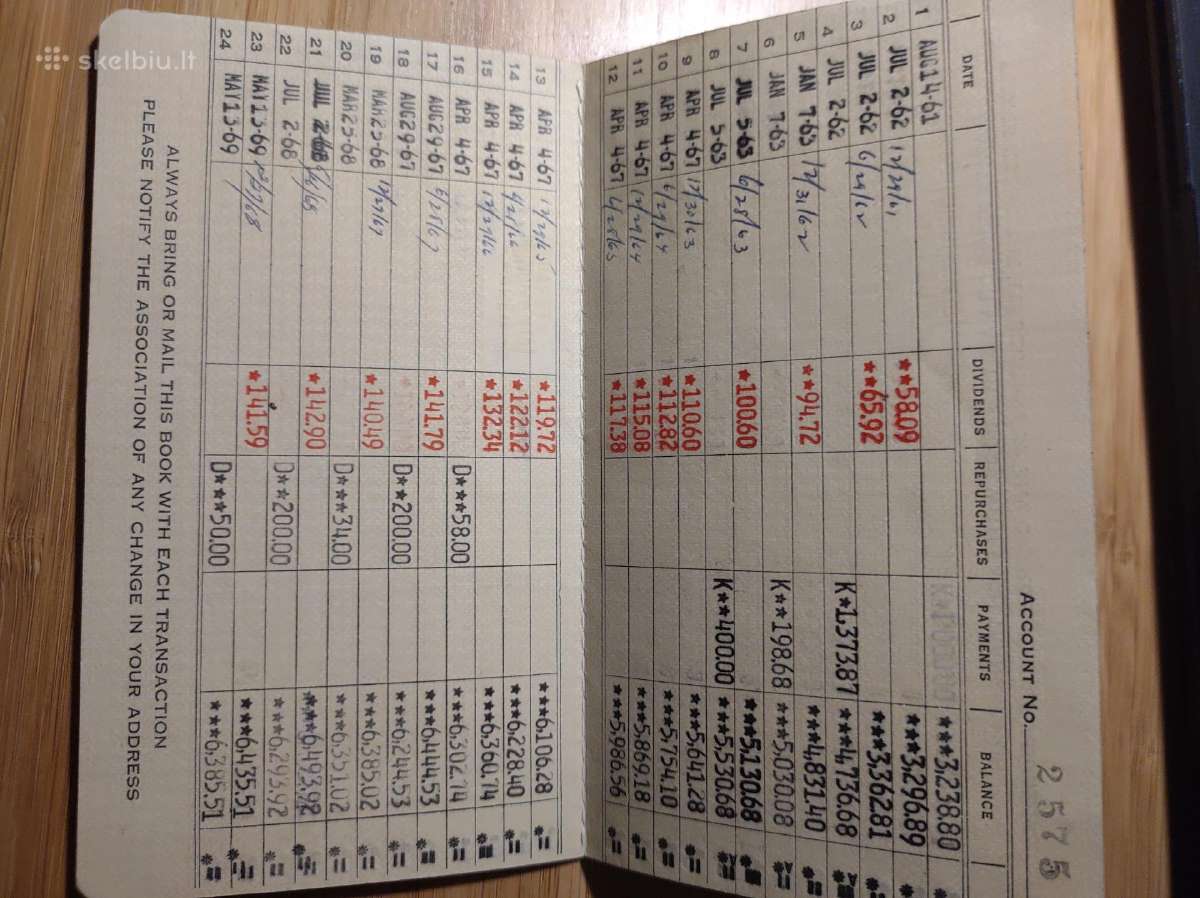 skelbiu.lt
ACCOUNT NO. 2575
DATE DIVIDENDS REPURCHASES PAYMENTS BALANCE
1 AUG14-61 ***3,238.80
2 JUL 2-62 12/29/61 **58.09 ***3,296.89
3 JUL 2-62 6/29/62 **65.92 ***3,362.81
4 JUL 2-62 K*1,373.87 ***4,736.68
5 JAN 7-63 12/31/62 **94.72 ***4,831.40
6 JAN 7-63 K**198.68 ***5,030.08
7 JUL 5-63 6/28/63 *100.60 ***5,130.68
8 JUL 5-63 K**400.00 ***5,530.68
9 APR 4-67 12/30/63 *110.60 ***5,641.28
10 APR 4-67 6/29/64 *112.82 ***5,754.10
11 APR 4-67 12/29/64 *115.08 ***5,869.18
12 APR 4-67 6/28/65 *117.38 ***5,986.56
13 APR 4-67 12/29/65 *119.72 ***6,106.28
14 APR 4-67 6/28/66 *122.12 ***6,228.40
15 APR 4-67 12/29/66 *132.34 ***6,360.74
16 APR 4-67 D***58.00 ***6,302.74
17 AUG29-67 6/28/67 *141.79 ***6,444.53
18 AUG29-67 D**200.00 ***6,244.53
19 MAR25-68 12/27/67 *140.49 ***6,385.02
20 MAR25-68 D***34.00 ***6,351.02
21 JUL 2-68 *142.90 ***6,493.92
22 JUL 2-68 D**200.00 ***6,293.92
23 MAY13-69 *141.59 ***6,435.51
24 MAY13-69 D***50.00 ***6,385.51
ALWAYS BRING OR MAIL THIS BOOK WITH EACH TRANSACTION
PLEASE NOTIFY THE ASSOCIATION OF ANY CHANGE IN YOUR ADDRESS